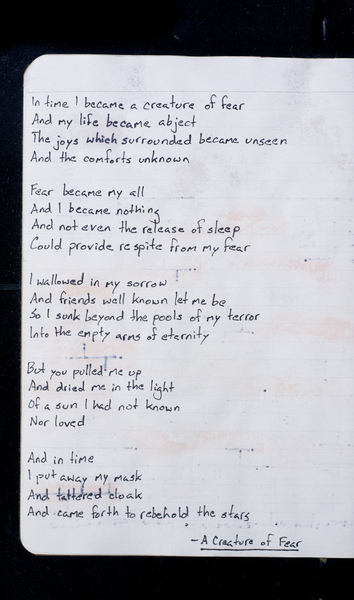 In time I became a creature of fear
And my life became abject
The joys which surrounded became unseen
And the comforts unknown
Fear became my all
And I became nothing
And not even the release of sleep
Could provide respite from my fear
I wallowed in my sorrow
And friends well known let me be
So I sunk beyond the pools of my terror
Into the empty arms of eternity
But you pulled me up
And dried me in the light
Of a sun I had not known
Nor loved
And in time
I put away my mask
And tattered cloak
And came forth to rebehold the stars
- A Creature of Fear